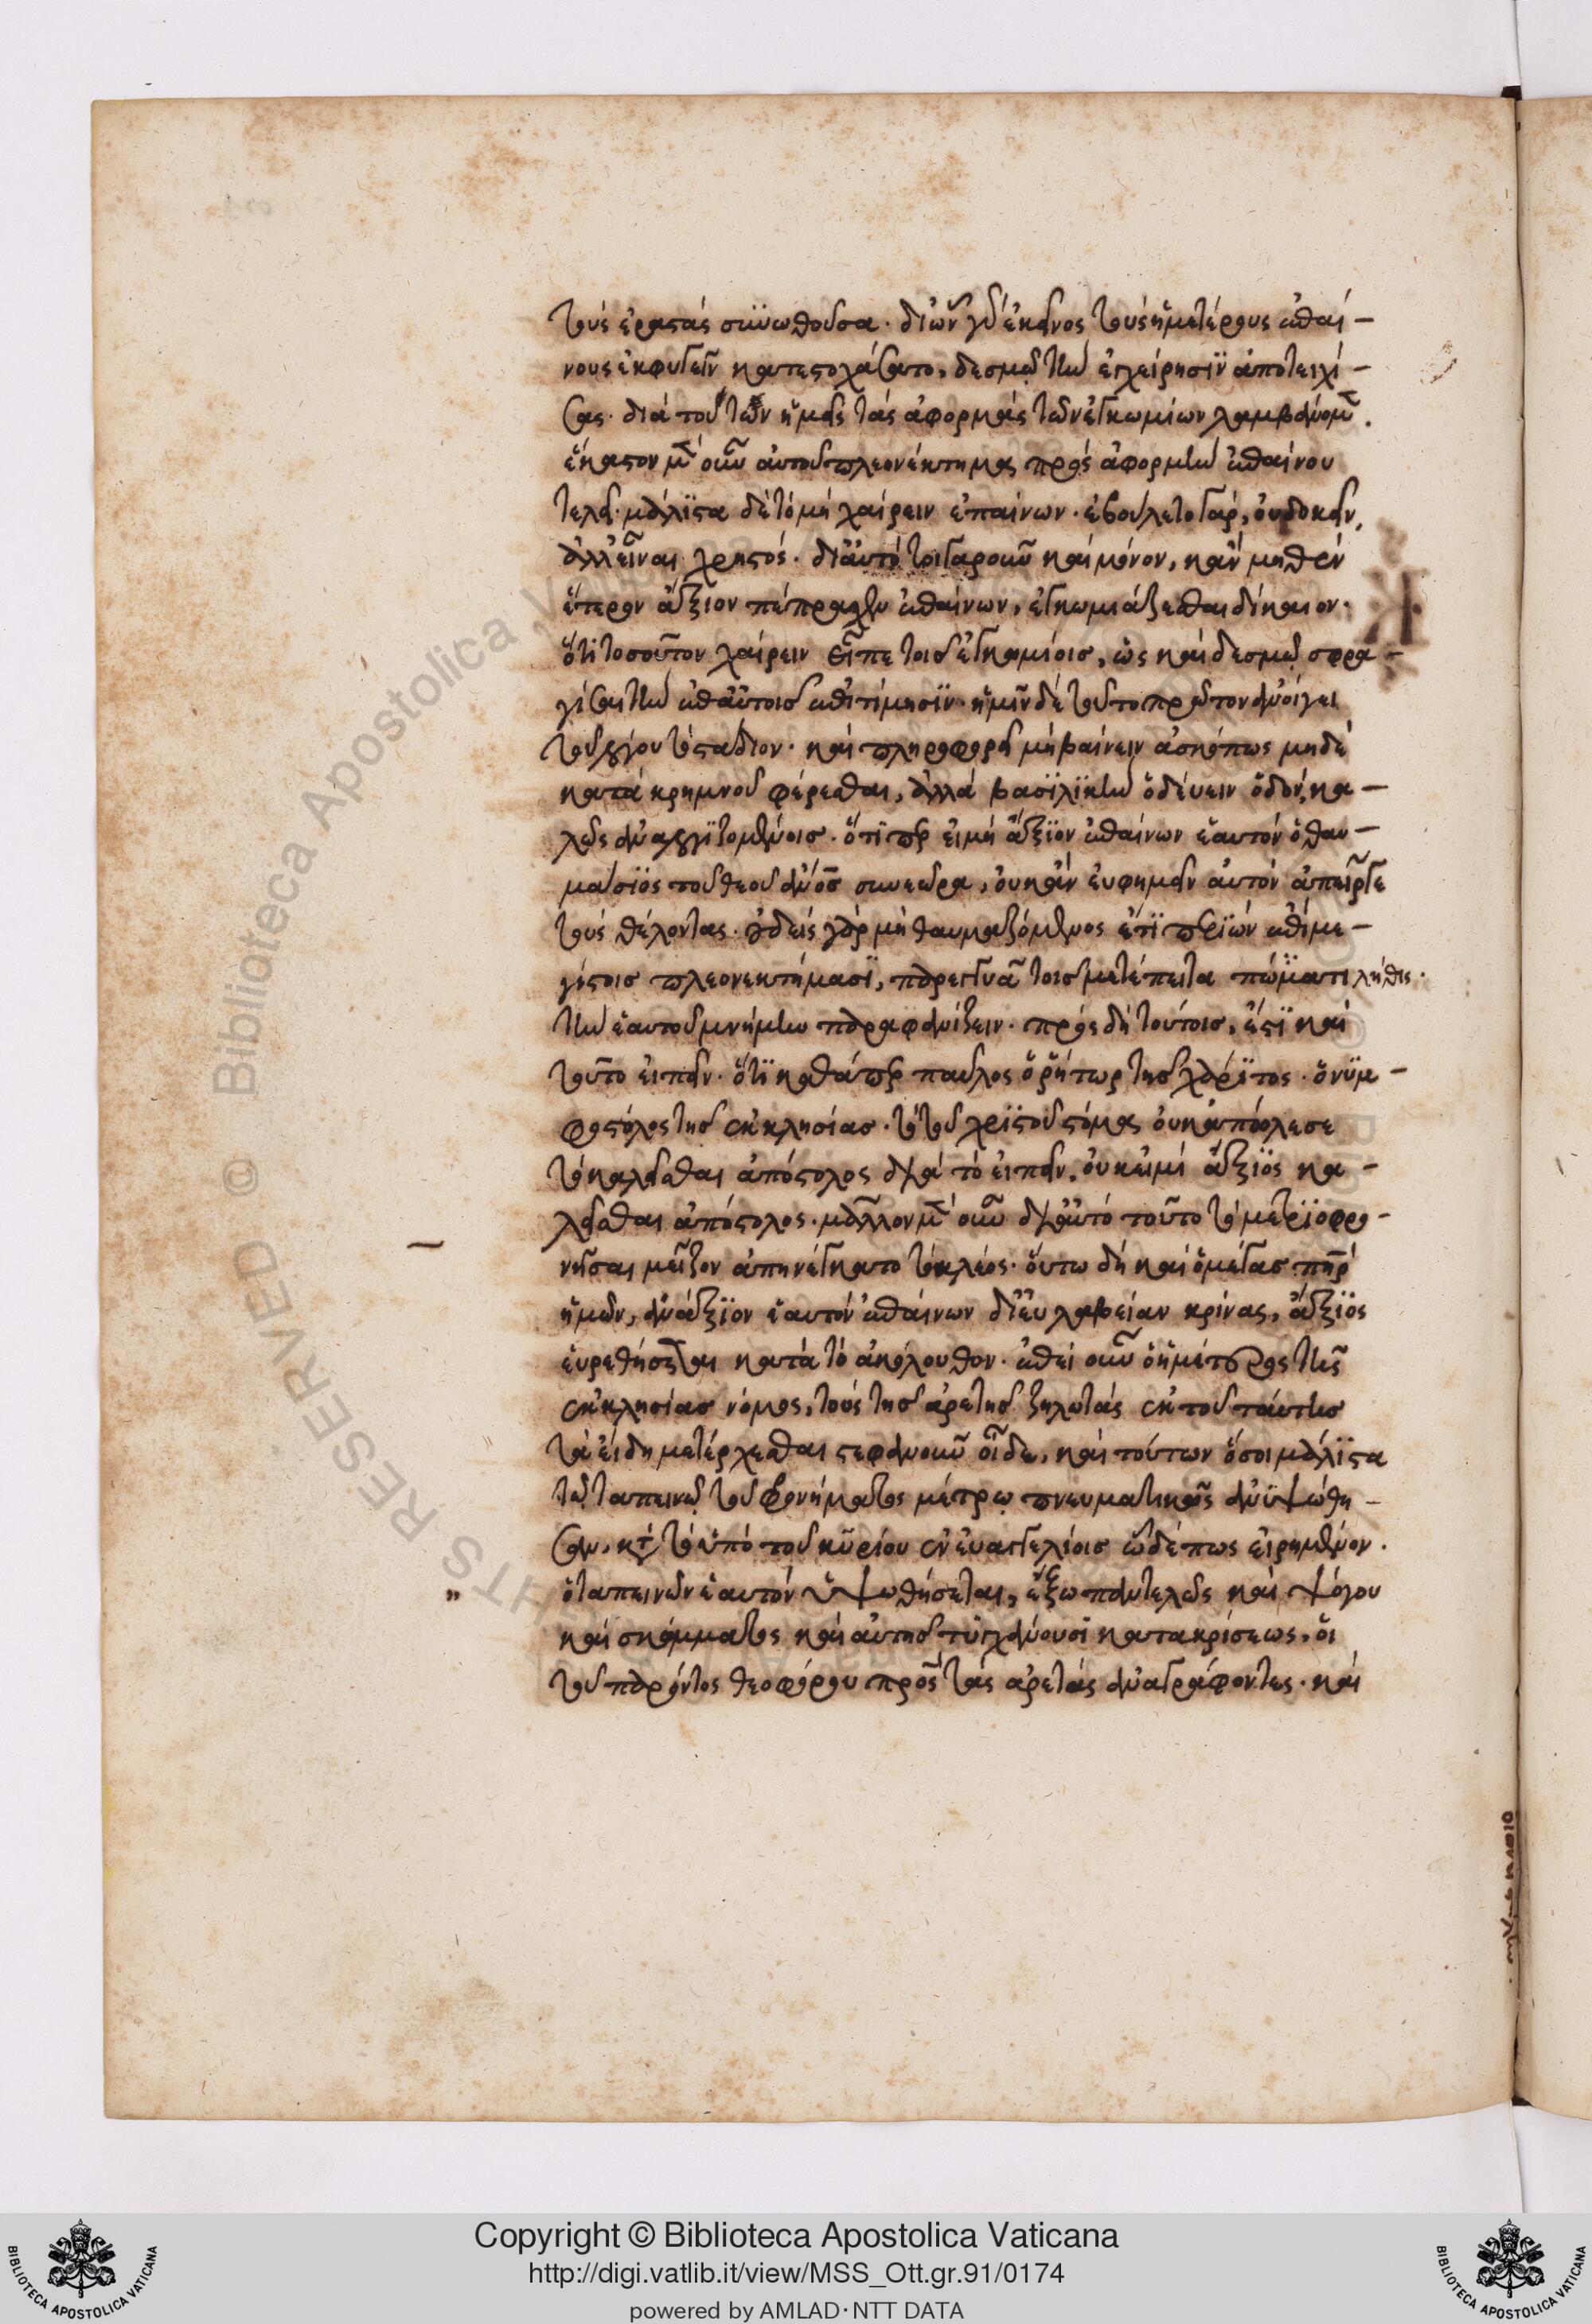 τοὺς ἐραστὰς συνωθοῦσα. δι' ὧν γὰρ ἐκεῖνος τοὺς ἡμετέρους ἐπαί-
νους ἐκφυγεῖν κατεστοχάσατο, δεσμῷ τὴν ἐγχείρησιν ἀποτειχί-
σας. διὰ τούτων ἡμεῖς τὰς ἀφορμὰς τῶν ἐγκωμίων λαμβάνομεν.
ἕκαστον μὲν οὖν αὐτοῦ πλεονέκτημα πρὸς ἀφορμὴν ἐπαίνου
τελεῖ. μάλιστα δὲ τὸ μὴ χαίρειν ἐπαίνων. ἐβούλετο γὰρ, οὐ δοκεῖν,
ἀλλ' εἶναι χρηστός. δι' αὐτὸ τοιγαροῦν καὶ μόνον, κἂν μηδὲν
ἕτερον ἄξιον πέπραχεν ἐπαίνων, ἐγκωμιάζεσθαι δίκαιον.
ὅτι τοσοῦτον χαίρειν εἶπε τοῖς ἐγκωμίοις, ὡς καὶ δεσμῷ σφρα-
γίσαι τὴν ἐπ' αὐτοῖς ἐπιτίμησιν. ἡμῖν δὲ τοῦτο πρῶτον ἀνοίγει
τοῦ λόγου τὸ στάδιον. καὶ πληροφορεῖ μὴ βαίνειν ἀσκόπως μηδὲ
κατὰ κρημνοῦ φέρεσθαι, ἀλλὰ βασιλικὴν ὁδεύειν ὁδὸν, κα-
λῶς ἀναλογιζομένοις. ὅτι περ εἰ μὴ ἄξιον ἐπαίνων ἑαυτὸν ὁ θαυ-
μάσιος τοῦ θεοῦ ἄνος συνεώρα, οὐκ ἂν εὐφημεῖν αὐτὸν ἀπεῖρξε
τοὺς θέλοντας. οὐδεὶς γὰρ μὴ θαυμαζόμενος ἔτι περιὼν ἐπὶ με-
γίστοις πλεονεκτήμασι, παρεγγυᾷ τοῖς μετέπειτα πώματι λήθης
τὴν ἑαυτοῦ μνήμην παραφανίζειν. πρὸς δὴ τούτοις, ἔστι καὶ
τοῦτο εἰπεῖν. ὅτι καθάπερ παῦλος ὁ ῥήτωρ τῆς χάριτος. ὁ νυμ-
φοστόλος τῆς ἐκκλησίας. τὸ τοῦ χριστοῦ στόμα οὐκ ἀπόλεσε
τὸ καλεῖσθαι ἀπόστολος διὰ τὸ εἰπεῖν, οὐκ εἰμὶ ἄξιος κα-
λεῖσθαι ἀπόστολος. μᾶλλον μὲν οὖν δι' αὐτὸ τοῦτο τὸ μετριοφρο-
νῆσαι μεῖζον ἀπηνέγκατο τὸ κλέος. οὕτω δὴ καὶ ὁ μέγας πηρ
ἡμῶν, ἀνάξιον ἑαυτὸν ἐπαίνων δι' εὐλάβειαν κρίνας, ἄξιος
εὑρεθήσεται κατὰ τὸ ἀκόλουθον. ἐπεὶ οὖν ὁ ἡμέτερος τῆς
ἐκκλησίας νόμος, τοὺς τῆς ἀρετῆς ζηλωτὰς ἐκ τοῦ ταύτης
τὰ εἴδη μετέρχεσθαι στεφανοῦν οἶδε, καὶ τούτων ὅσοι μάλιστα
τῷ ταπεινῷ τοῦ φρονήματος μέτρῳ πνευματικῶς ἀνυψώθη-
σαν, κτ τὸ ὑπὸ τοῦ κυρίου ἐν εὐαγγελίοις ὧδέ πως εἰρημένον.
ὁ ταπεινῶν ἑαυτὸν ὑψωθήσεται, ἔξω παντελῶς καὶ ψόγου
καὶ σκώμματος καὶ αὐτῆς τυγχάνουσι κατακρίσεως, οἱ
τοῦ παρόντος θεοφόρου πρὸς τὰς ἀρετὰς ἀναγράφοντες. καὶ
Copyright © Biblioteca Apostolica Vaticana
http://digi.vatlib.it/view/MSS_Ott.gr.91/0174
powered by AMLAD·NTT DATA